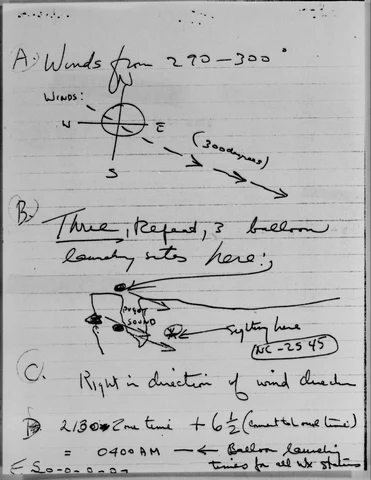 A. Winds from 290–300°
N
WINDS:
W E
(300 degrees)
S
B. Three, Repeat, 3 balloon
launching sites here:
PUGET
SOUND
sighting here
NC-2545
C. Right in direction of wind direction
D. 2130 Zone time + 6 1/2 (
= 0400 AM ← Balloon launching
times for all Wx stations
E S0-0-0-0-0-